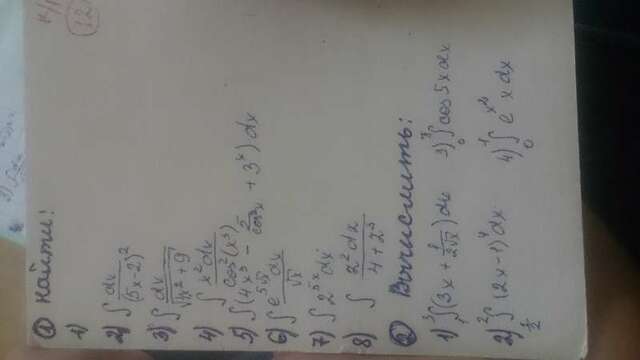 ① Найти:
1)
2) ∫ dx/(5x-2)²
3) ∫ dx/√(4x²+9)
4) ∫ x²dx/cos²(x³)
5) ∫(4x³ - 2/cos²x + 3ˣ) dx
6) ∫ e^(5√x) dx/√x
7) ∫ 2^(5x) dx
8) ∫ z²dz/(4+z³)
② Вычислить:
1) ∫₁³(3x + 1/(2√x)) dx 3) ∫₀ cos 5x dx
2) ∫_(1/2)^2 (2x-1)⁴ dx 4) ∫₀¹ e^(x²) x dx